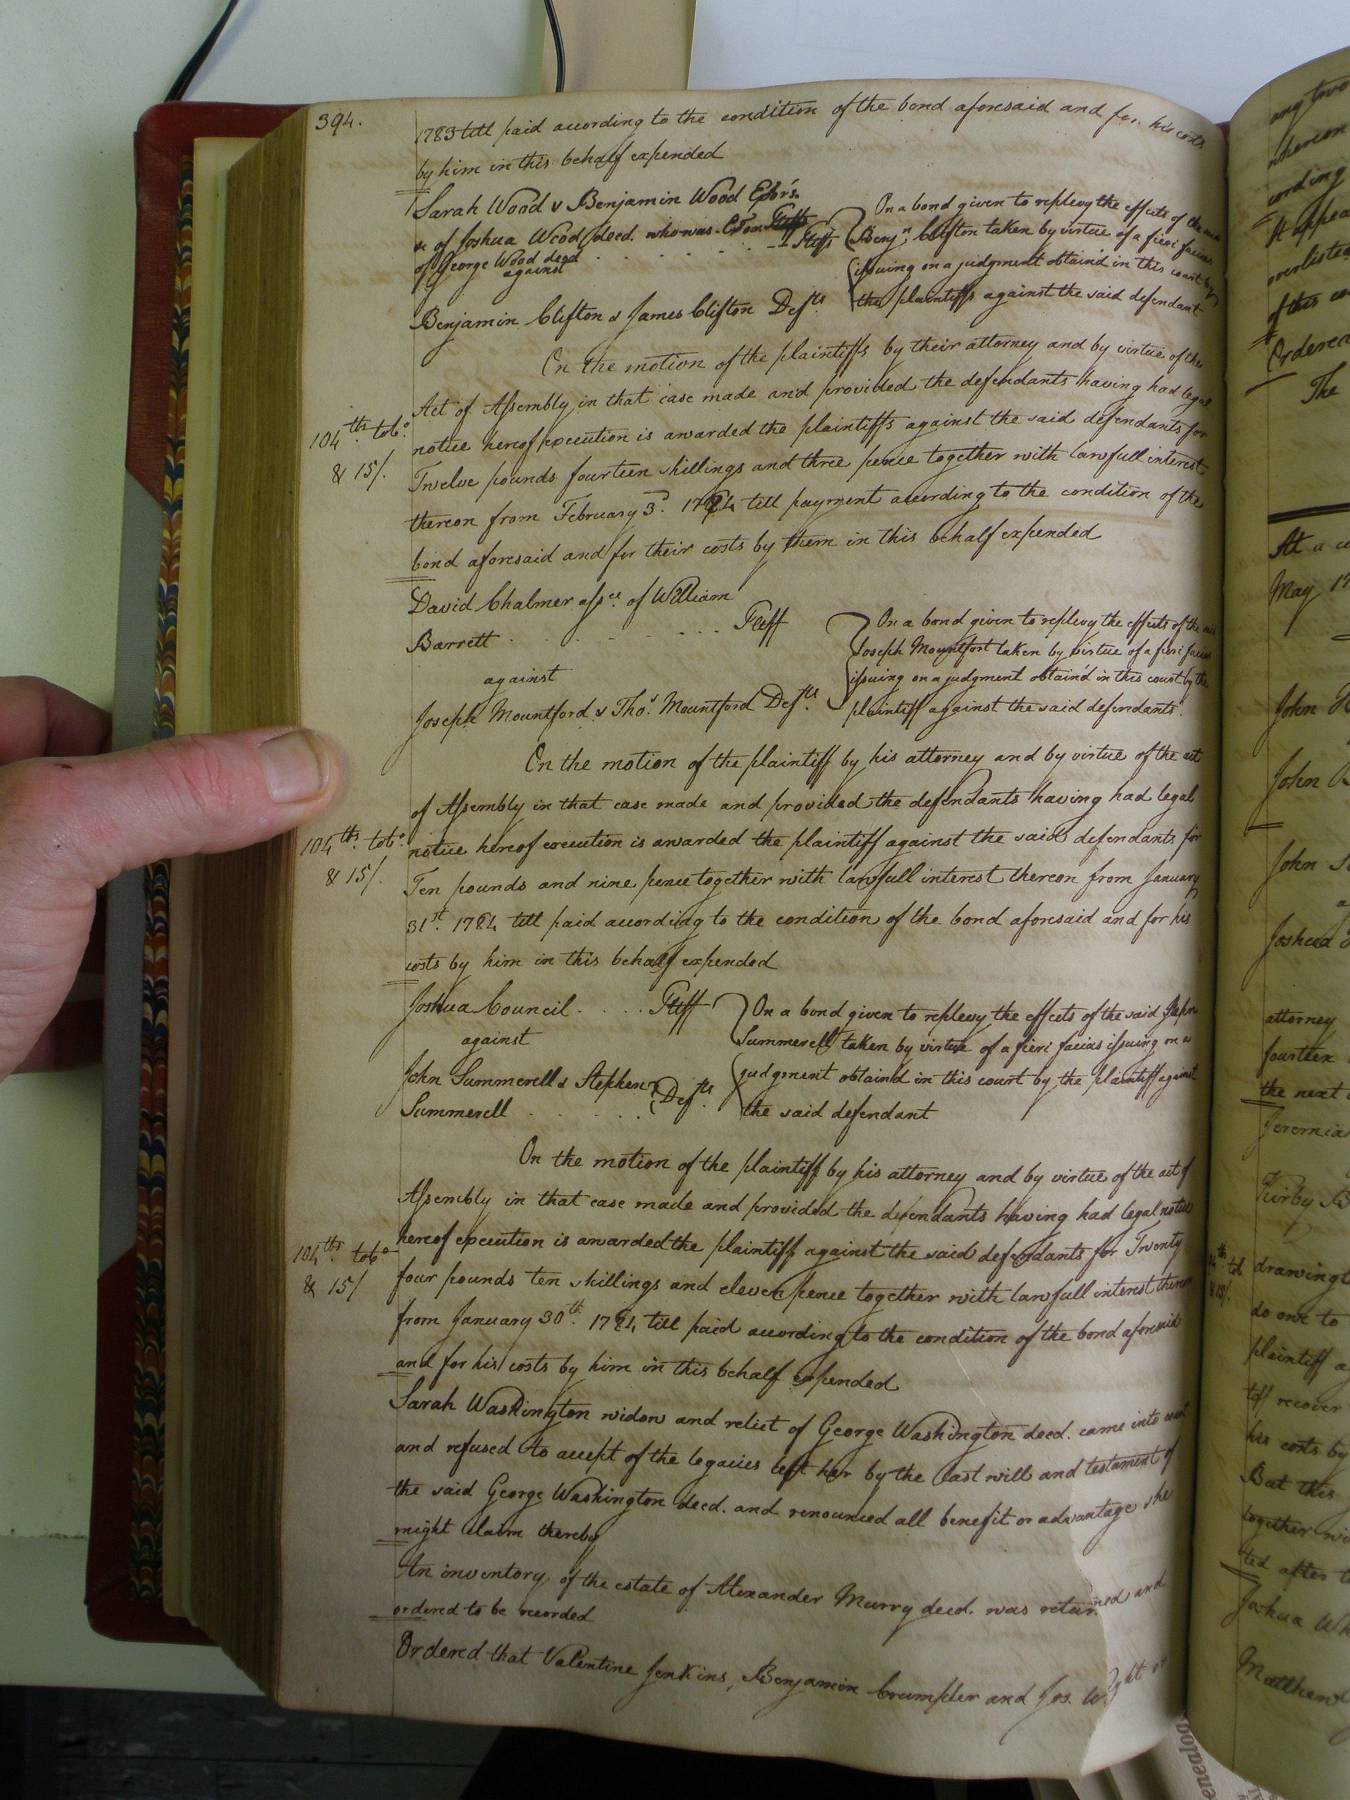 394.
1783 till paid according to the condition of the bond aforesaid and for his costs
by him in this behalf expended
Sarah Wood & Benjamin Wood Exõrs.
&c of Joshua Wood decd. who was Exõr. Pltffs
of George Wood decd . . . . . Pltffs
against
Benjamin Clifton & James Clifton Defts
On a bond given to replevy the effects of the said
Benjn. Clifton taken by virtue of a fieri facias
issuing on a judgment obtain'd in this court by
the plaintiffs against the said defendant
On the motion of the plaintiffs by their attorney and by virtue of the
Act of Assembly in that case made and provided the defendants having had legal
notice hereof execution is awarded the plaintiffs against the said defendants for
104 tts. tobo.
& 15/.
Twelve pounds fourteen shillings and three pence together with lawfull interest
thereon from February 3d. 1784 till payment according to the condition of the
bond aforesaid and for their costs by them in this behalf expended
David Chalmer assee. of William
Barrett . . . . . . Pltff
against
Joseph Mountford & Thos. Mountford Defts.
On a bond given to replevy the effects of the said
Joseph Mountfort taken by virtue of a fieri facias
issuing on a judgment obtain'd in this court by the
plaintiff against the said defendants.
On the motion of the plaintiff by his attorney and by virtue of the act
of Assembly in that case made and provided the defendants having had legal
notice hereof execution is awarded the plaintiff against the said defendants for
104 tts. tobo.
& 15/.
Ten pounds and nine pence together with lawfull interest thereon from January
31st. 1784 till paid according to the condition of the bond aforesaid and for his
costs by him in this behalf expended
Joshua Council . . . . Pltff
against
John Summerell & Stephen
Summerell . . . . . Defts.
On a bond given to replevy the effects of the said John
Summerell taken by virtue of a fieri facias issuing on a
judgment obtain'd in this court by the plaintiff against
the said defendant
On the motion of the plaintiff by his attorney and by virtue of the act of
Assembly in that case made and provided the defendants having had legal notice
hereof execution is awarded the plaintiff against the said defendants for Twenty
104 tts. tobo.
& 15/
four pounds ten shillings and eleven pence together with lawfull interest thereon
from January 30th. 1784 till paid according to the condition of the bond aforesaid
and for his costs by him in this behalf expended
Sarah Washington widow and relict of George Washington decd. came into court
and refused to accept of the legacies left her by the last will and testament of
the said George Washington decd. and renounced all benefit or advantage she
might claim thereby
An inventory of the estate of Alexander Murry decd. was returned and
ordered to be recorded
Ordered that Valentine Jenkins, Benjamin Crumpler and Jos. Wright or
ang two
whereon
cording
It appea
overlisted
of this co
Ordered
The
At a co
May 17
John
John
John
Joshua
attorney
fourteen
the next
Jeremia
Kirby
drawing
do one to
plaintiff a
tiff recover
his costs by
But this
together wi
ted after t
Joshua
Matthew